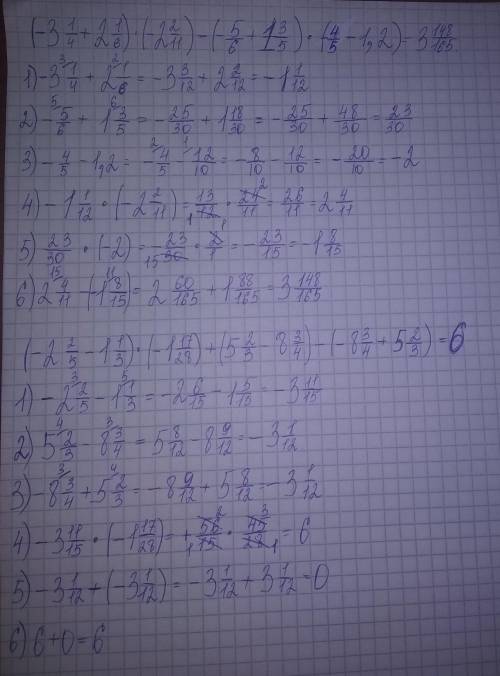 (-3 1/4 + 2 1/6) · (-2 2/11) - (-5/6 + 1 3/5) · (-4/5 - 1,2) = 3 148/165
1) -3 1/4 + 2 1/6 = -3 3/12 + 2 2/12 = -1 1/12
2) -5/6 + 1 3/5 = -25/30 + 1 18/30 = -25/30 + 48/30 = 23/30
3) -4/5 - 1,2 = -4/5 - 12/10 = -8/10 - 12/10 = -20/10 = -2
4) -1 1/12 · (-2 2/11) = 13/12 · 24/11 = 26/11 = 2 4/11
5) 23/30 · (-2) = -23/30 · 2/1 = -23/15 = -1 8/15
6) 2 4/11 - (-1 8/15) = 2 60/165 + 1 88/165 = 3 148/165
(-2 2/5 - 1 1/3) · (-1 17/28) + (5 2/3 - 8 3/4) - (-8 3/4 + 5 2/3) = 6
1) -2 2/5 - 1 1/3 = -2 6/15 - 1 5/15 = -3 11/15
2) 5 2/3 - 8 3/4 = 5 8/12 - 8 9/12 = -3 1/12
3) -8 3/4 + 5 2/3 = -8 9/12 + 5 8/12 = -3 1/12
4) -3 11/15 · (-1 17/28) = +56/15 · 45/28 = 6
5) -3 1/12 + (-3 1/12) = -3 1/12 + 3 1/12 = 0
6) 6 + 0 = 6